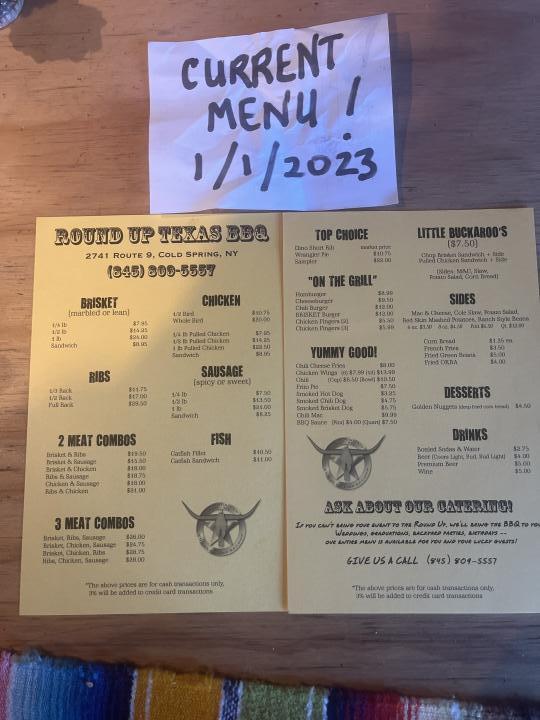 CURRENT
MENU!
1/1/2023
ROUND UP TEXAS BBQ
2741 ROUTE 9, COLD SPRING, NY
(845) 809-5557
BRISKET
(marbled or lean)
1/4 lb $7.95
1/2 lb $14.25
1 lb $24.00
Sandwich $8.95
RIBS
1/3 Rack $11.75
1/2 Rack $17.00
Full Rack $29.50
2 MEAT COMBOS
Brisket & Ribs $19.50
Brisket & Sausage $15.50
Brisket & Chicken $18.00
Ribs & Sausage $18.75
Chicken & Sausage $18.00
Ribs & Chicken $21.00
3 MEAT COMBOS
Brisket, Ribs, Sausage $26.00
Brisket, Chicken, Sausage $24.75
Brisket, Chicken, Ribs $28.75
Ribs, Chicken, Sausage $28.00
CHICKEN
1/2 Bird $10.75
Whole Bird $20.00
1/4 lb Pulled Chicken $7.95
1/2 lb Pulled Chicken $14.25
1 lb Pulled Chicken $22.50
Sandwich $8.95
SAUSAGE
(spicy or sweet)
1/4 lb $7.50
1/2 lb $13.50
1 lb $21.00
Sandwich $8.25
FISH
Catfish Fillet $10.50
Catfish Sandwich $11.00
*The above prices are for cash transactions only,
3% will be added to credit card transactions
TOP CHOICE
Dino Short Rib market price
Wrangler Pie $10.75
Sampler $22.00
"ON THE GRILL"
Hamburger $8.99
Cheeseburger $9.50
Chili Burger $12.00
BRISKET Burger $12.00
Chicken Fingers (2) $5.50
Chicken Fingers (3) $5.99
YUMMY GOOD!
Chili Cheese Fries $8.00
Chicken Wings (6) $7.99 (12) $13.99
Chili (Cup) $5.50 (Bowl) $10.50
Frito Pie $7.50
Smoked Hot Dog $3.25
Smoked Chili Dog $4.75
Smoked Brisket Dog $5.75
Chili Mac $9.99
BBQ Sauce (Pint) $4.00 (Quart) $7.50
LITTLE BUCKAROO'S
($7.50)
Chop Brisket Sandwich + Side
Pulled Chicken Sandwich + Side
(Sides: M&C, Slaw,
Potato Salad, Corn Bread)
SIDES
Mac & Cheese, Cole Slaw, Potato Salad,
Red Skin Mashed Potatoes, Ranch Style Beans
4 oz. $3.50 8 oz. $4.50 Pint $6.50 Qt. $12.00
Corn Bread $1.25 ea.
French Fries $3.50
Fried Green Beans $5.00
Fried OKRA $4.00
DESSERTS
Golden Nuggets (deep fried corn bread) $4.50
DRINKS
Bottled Sodas & Water $2.75
Beer (Coors Light, Bud, Bud Light) $4.00
Premium Beer $5.00
Wine $5.00
ASK ABOUT OUR CATERING!
IF YOU CAN'T BRING YOUR EVENT TO THE ROUND UP, WE'LL BRING THE BBQ TO YOU
WEDDINGS, GRADUATIONS, BACKYARD PARTIES, BIRTHDAYS --
OUR ENTIRE MENU IS AVAILABLE FOR YOU AND YOUR LUCKY GUESTS!
GIVE US A CALL (845) 809-5557
*The above prices are for cash transactions only,
3% will be added to credit card transactions